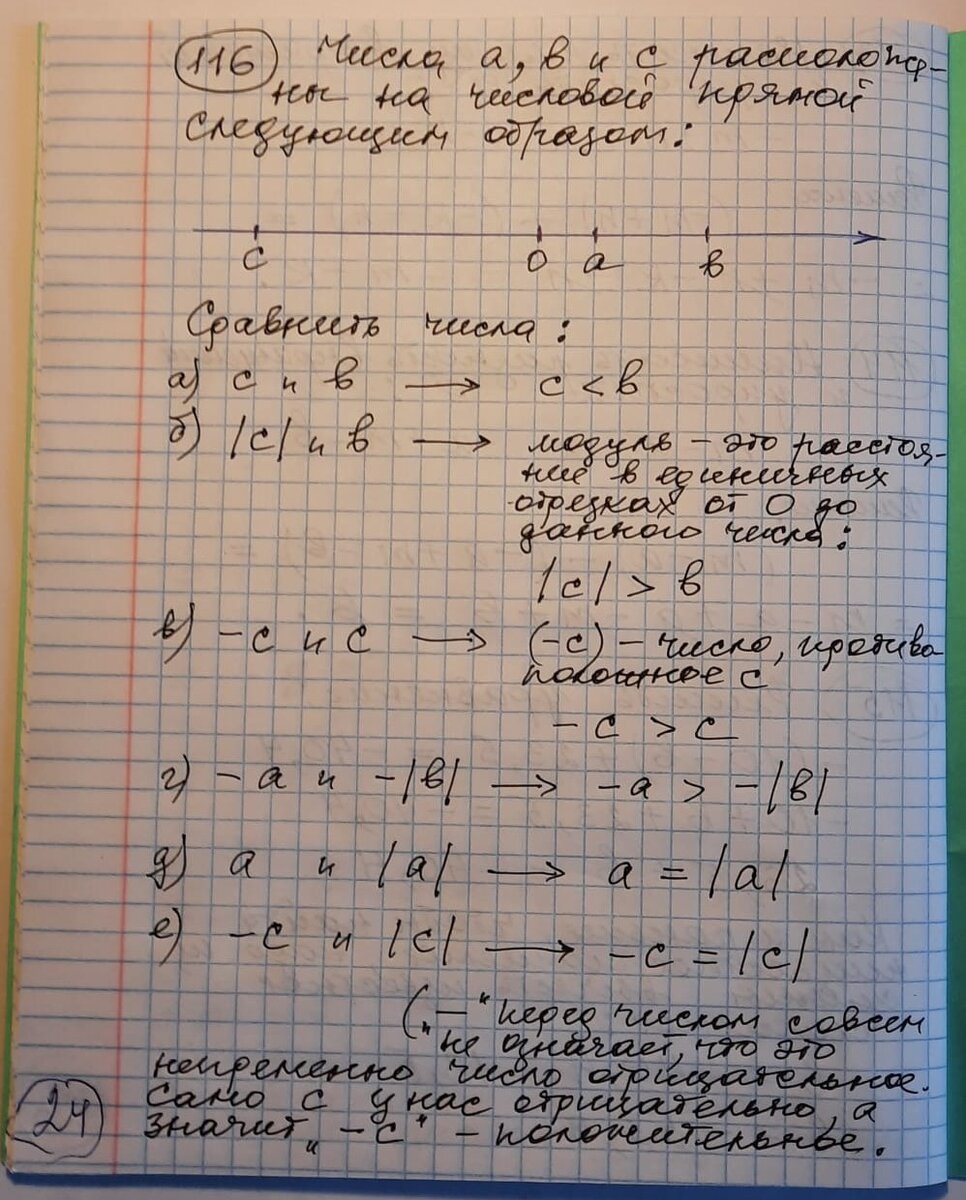 116 Числа а, в и с расположе-
ны на числовой прямой
следующим образом:
с 0 а в
Сравнить числа:
а) с и в → с < в
б) |с| и в → модуль – это расстоя-
ние в единичных
отрезках от 0 до
данного числа:
|с| > в
в) -с и с → (-с) – число, противо
положное с
-с > с
г) -а и -|в| → -а > -|в|
д) а и |а| → а = |а|
е) -с и |с| → -с = |с|
(„—" перед числом совсем
не означает, что это
непременно число отрицательное.
Само с у нас отрицательно, а
значит „-с" – положительное.
24